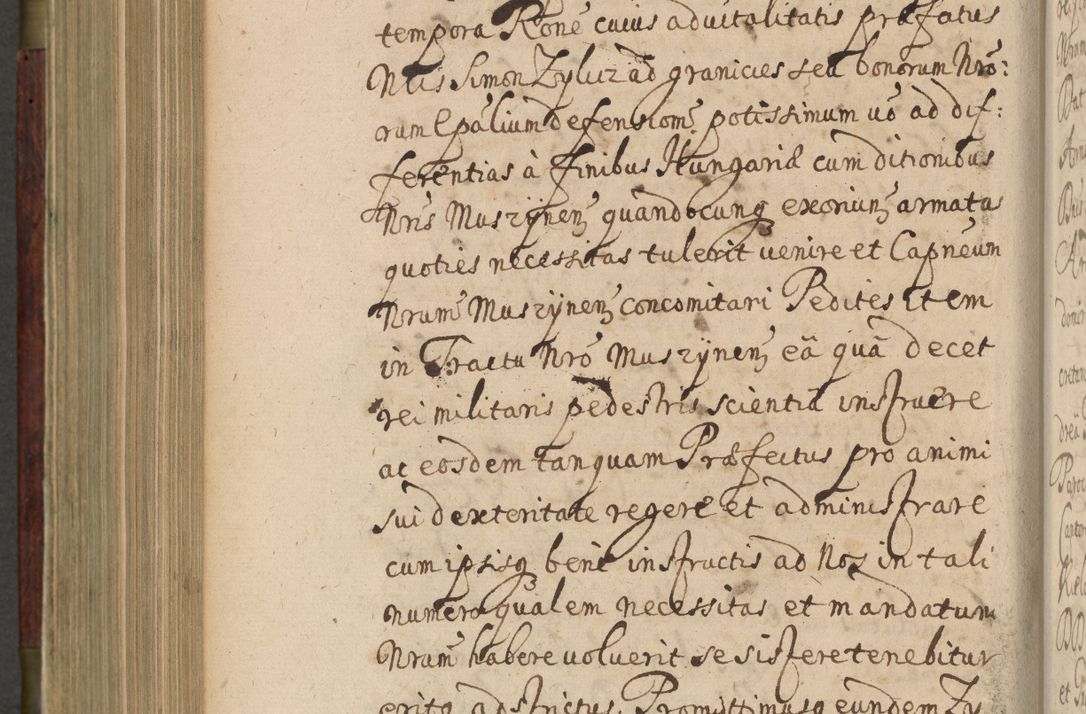 tempora Rõne cuius advitalitatis præfatus
Nlis Simon Zyluz ad granicies seu bonorum Nrõ:
rum Epãlium defensionẽ potissimum võ ad dif:
ferentias à finibus Hungariæ cum ditionibus
Nris Muszÿneñ quandocunq exoriuñ armata
quoties necessitas tulerit venire et Capneum
Nrum Muszÿneñ concomitari Pedites item
in Tractu Nrõ Muszÿneñ eã quã decet
rei militaris pedestris scientiã instruere
ac eosdem tanquam Præfectus pro animi
sui dexteritate regere et administrare
cum ipsisq bene instructis ad Nos in tali
numero qualem necessitas et mandatum
Nrum habere voluerit se sistere tenebitur
eritq adstrictus Promittimusq eundem Zy